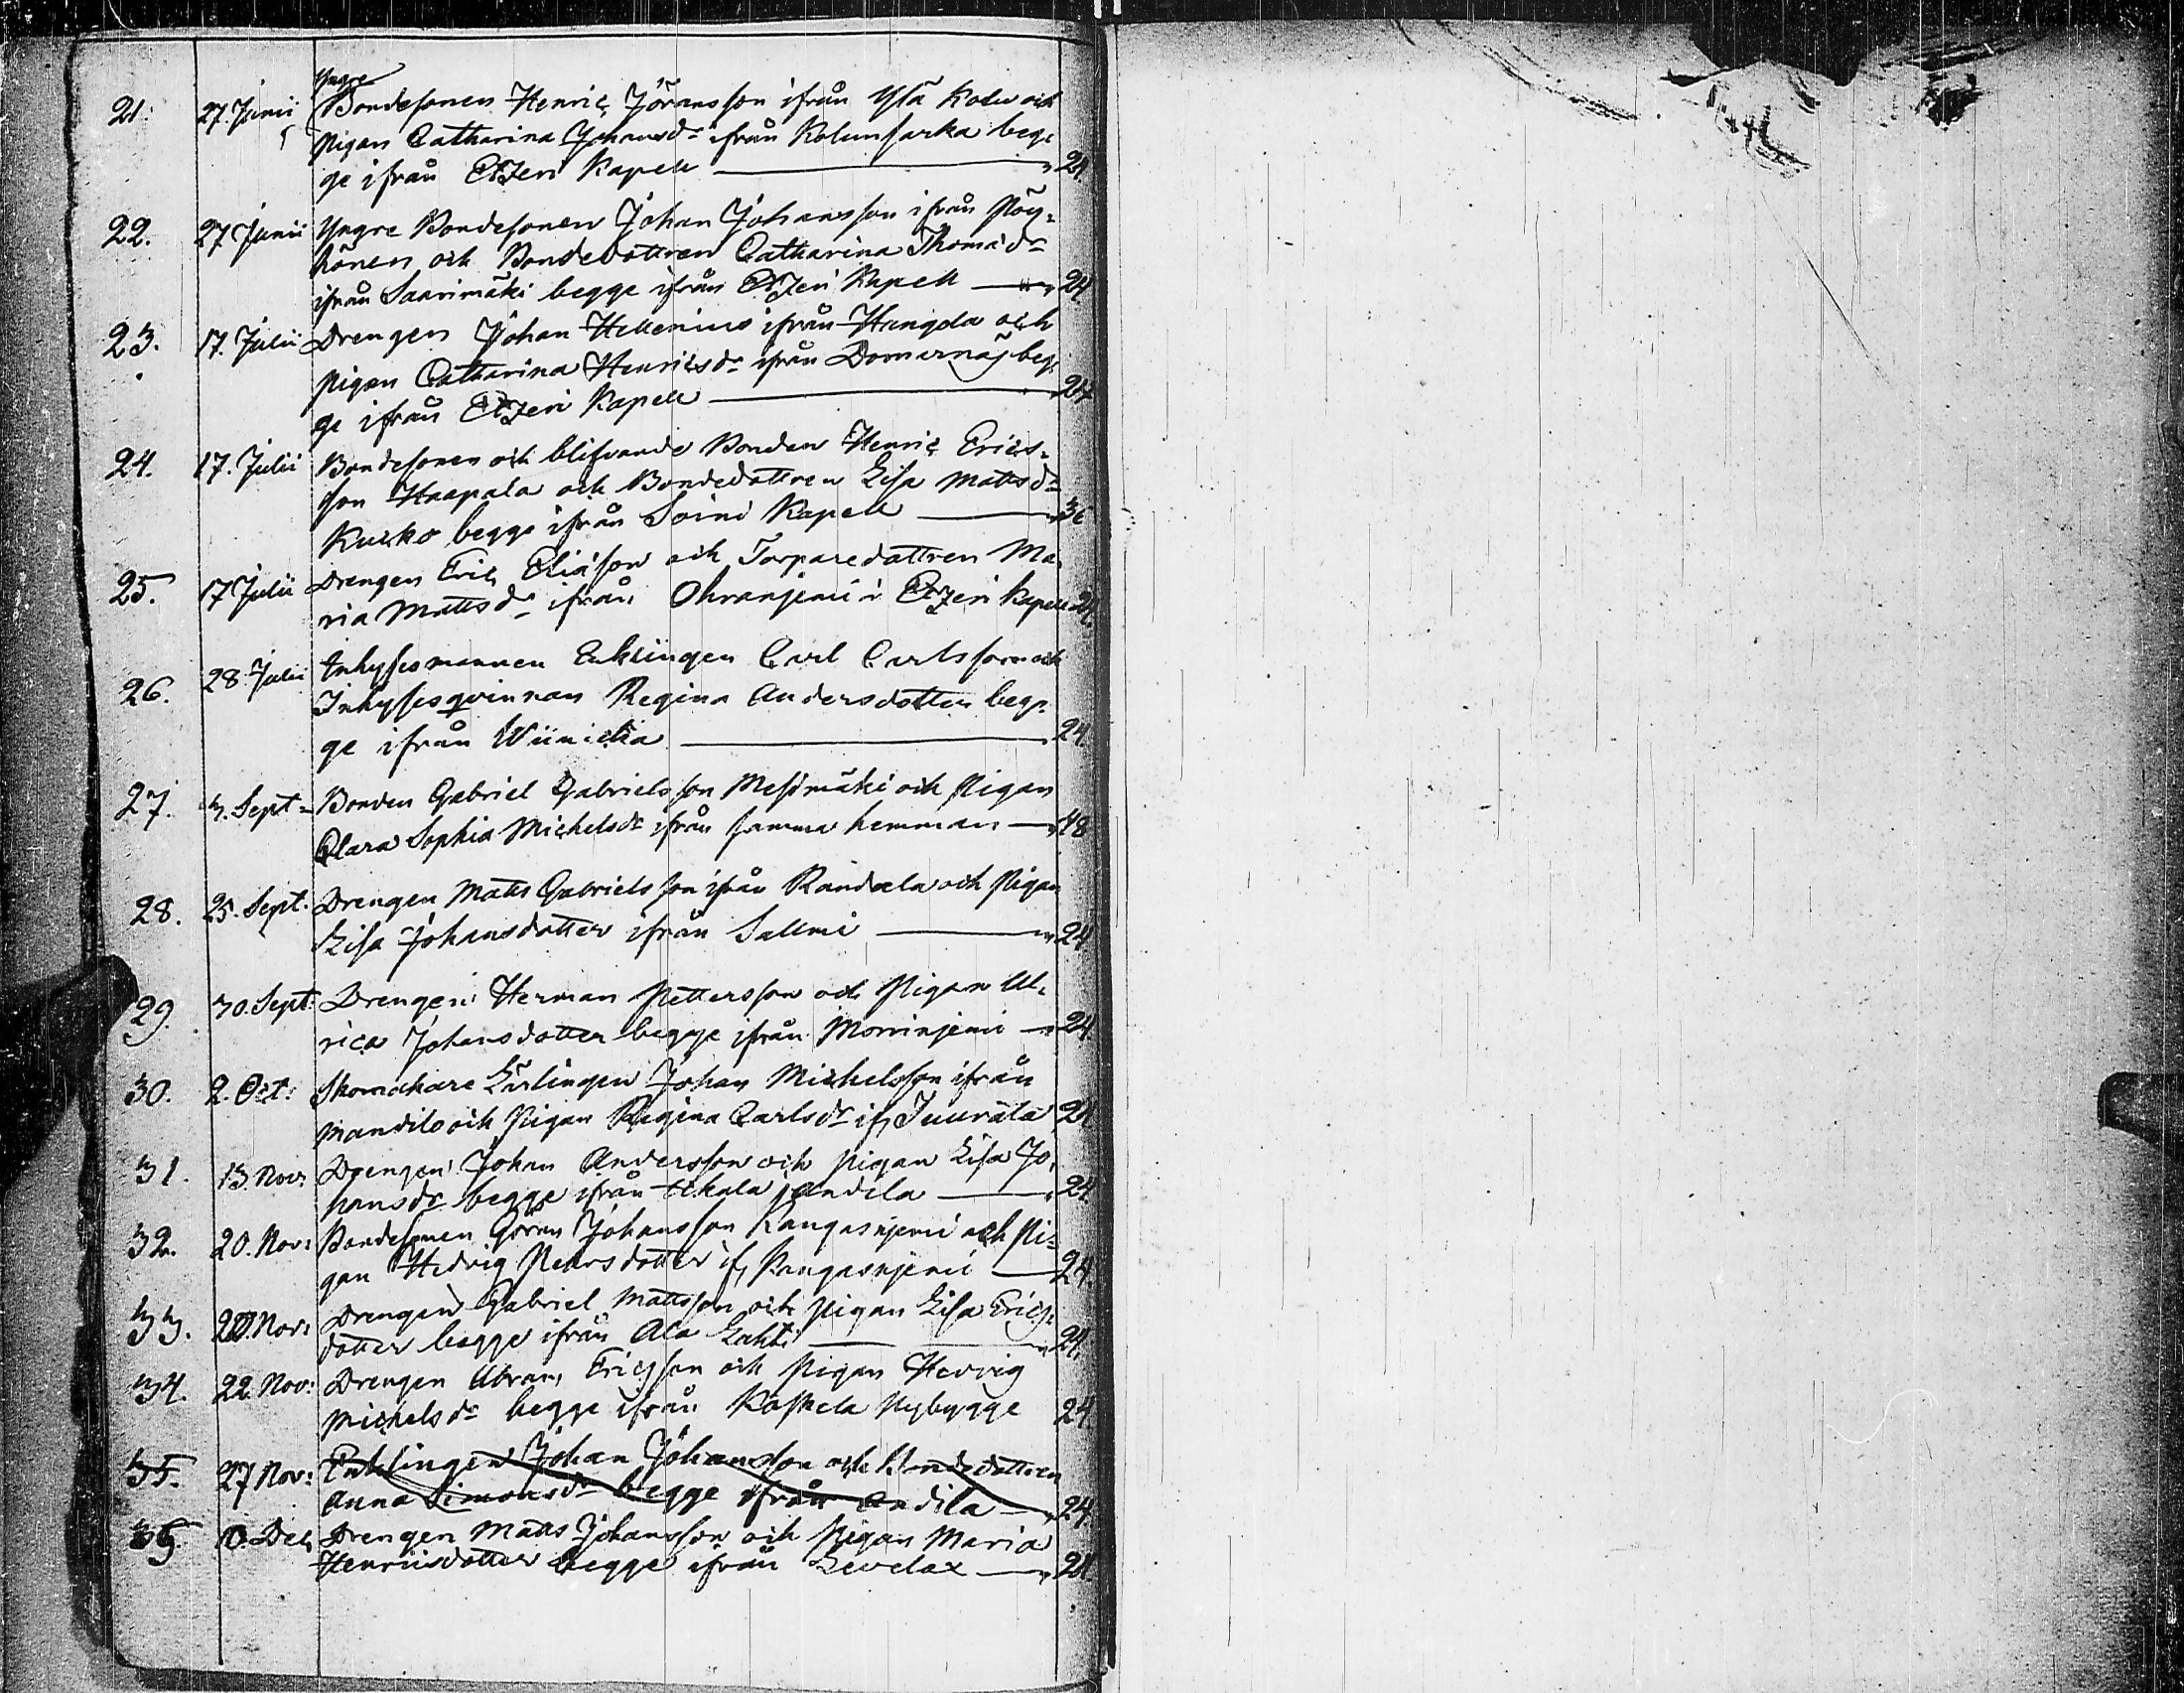 Yngre
21. 27. Junii Bondesonen Henric Jöransson ifrån Ylä Kolu och
Pigan Catharina Johansdr ifrån Kolunsarka beg-
ge ifrån Etzeri Kapell — 24.
22. 27 Junii Yngre Bondesonen Johan Johansson ifrån Pöy-
hönen och Bondedottren Catharina Thomædr
ifrån Saarimäki begge ifrån Etzeri Kapell — 24.
23. 17. Julii Drengen Johan Hellenius ifrån Hangola och
pigan Catharina Henricsdr ifrån beg-
ge ifrån Etzeri Kapell — 24
24. 17. Julii Bondesonen och blifvande Bonden Henric Erics-
son Haapala och Bondedottren Lisa Mattsdr
Kuisko begge ifrån Soini Kapell — 36
25. 17 Julii Drengen Eric Eliæson och Torparedottren Ma-
ria Mattsdr ifrån i Etzeri Kapell 24.
26. 28 Julii Inhysesmannen Enklingen Carl Carlsson och
Inhysesqvinnan Regina Andersdotter beg-
ge ifrån — 24.
27. 3. Sept: Bonden Gabriel Gabrielsson Mesimäki och Pigan
Clara Sophia Michelsdr ifrån samma hemman — 48
28. 25. Sept: Drengen Matts Gabrielsson ifrån Randala och Pigan
Lisa Johansdotter ifrån Salmi — 24
29. 30. Sept: Drengen Herman Pettersson och Pigan Ul-
rica Johansdotter begge ifrån — 24.
30. 2. Oct: Skomakare Lärlingen Johan Michelsson ifrån
Mandilo och Pigan Regina Carlsdr if, 24
31. 13. Nov: Drengen Johan Andersson och pigan Lisa Jo-
hansdr begge ifrån Andila — 24.
32. 20. Nov: Bondesonen Göran Johansson Kangasnjemi och Pi-
gan Hedvig Pehrsdotter if, Kangasnjemi — 24.
33. 20. Nov: Drengen Gabriel Mattsson och pigan Lisa Erics-
dotter begge ifrån Ala Lahti — 24.
34. 22. Nov: Drengen Abram Ericsson och Pigan Hedvig
Michelsdr begge ifrån Koskela Nybygge 24
35. 27 Nov: Enklingen Johan Johansson och Bondedottren
Anna Simonsdr begge ifrån Andila — 24
35. Dec, Drengen Matts Johansson och Pigan Maria
Henricsdotter begge ifrån Levelax — 24.